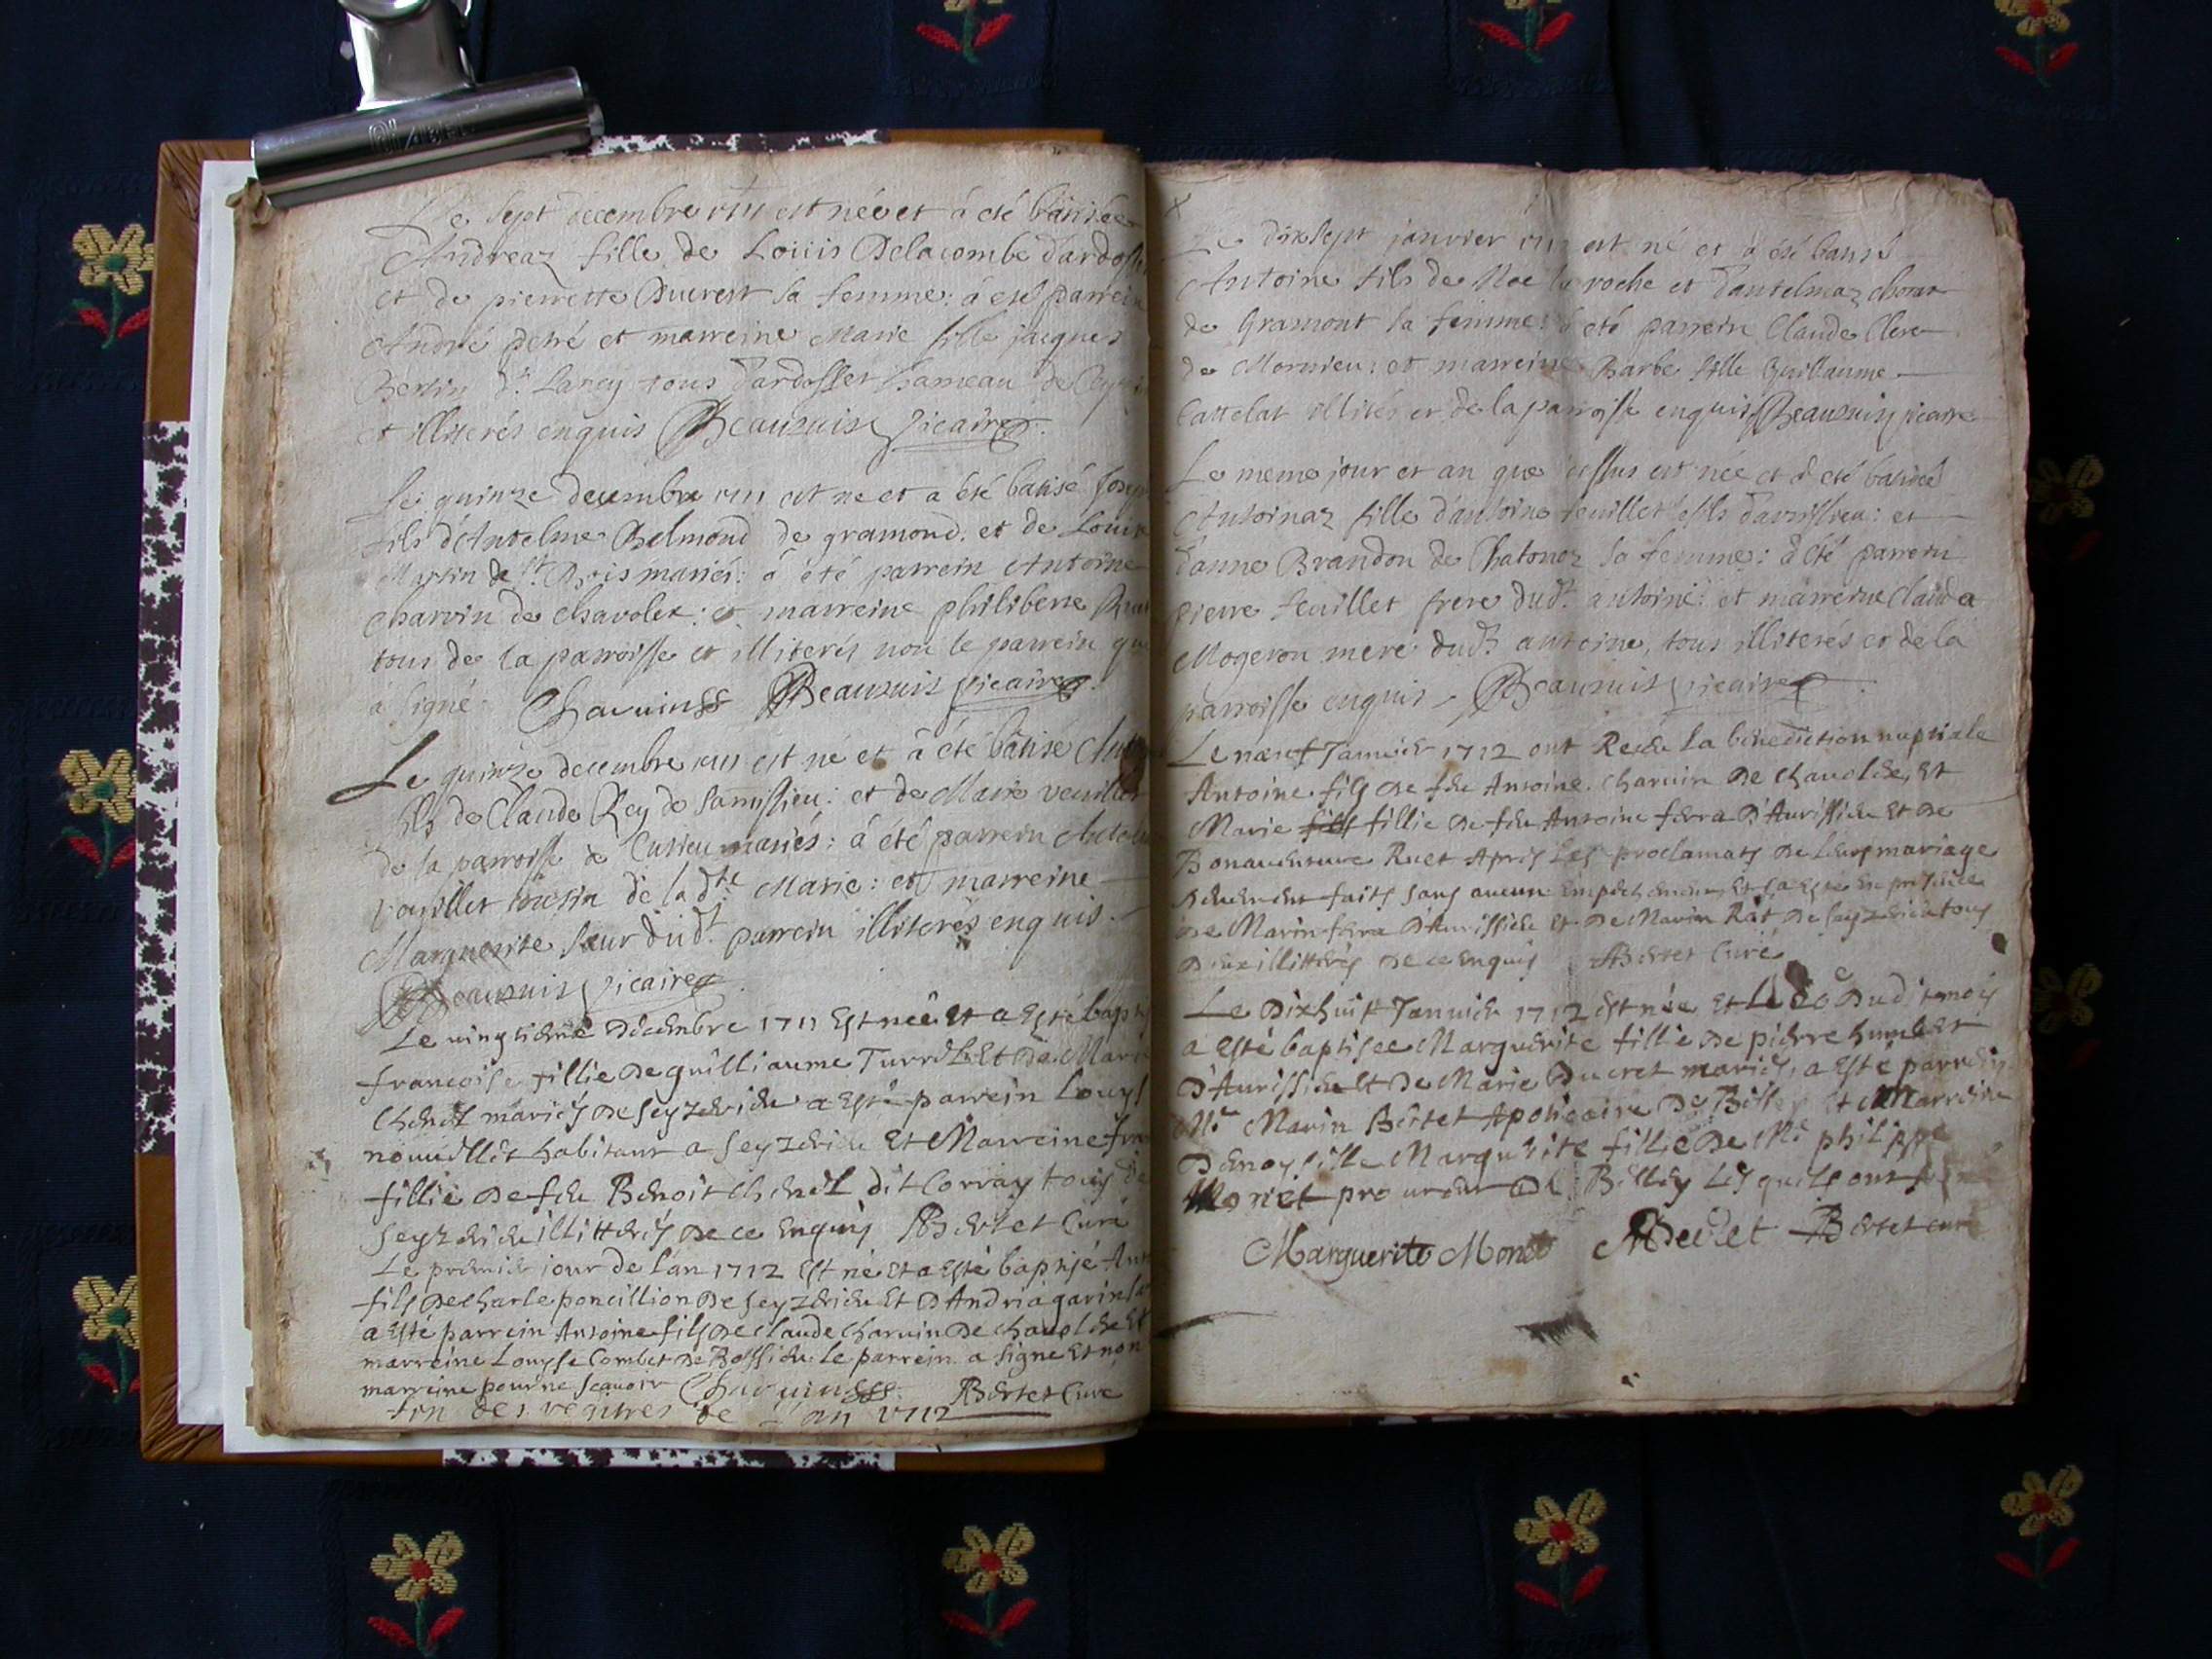 Le sept decembre 1711 est née et à été bâtisée
Andreaz fille de Loüis Delacombe d'ardosset
et de pierrette Ducrest sa femme: à eté parrein
André petré et marreine Marie fille jacques
tous d'ardosset hameau de
et illiterés enquis Beauzuis Vicaire
Le quinze decembre 1711 est né et a été batisé
fils d'Antelme Belmond de gramond. et de Louise
Martin de St. mariés: à été parrein Antoine
charvin de chavolex: et marreine philiberte
tous de la parroisse et illiterés non le parrein qui
à signé Charuin Beauzuis Vicaire
Le quinze decembre 1711 est né et à été bâtisé
fils de Claude Rey de et de Marie veuillet
de la parroisse de Cusieu mariés: à été parrein
veuillet cousin de la dte Marie: et marreine
Marguerite sœur dudt. parrein illiterés enquis.
Beauzuis Vicaire
Le vingtieme Decembre 1711 Est née Et a Esté bapt
francoise fillie De guilliaume Turrel Et De Marie
mariés De Seyzerieu a Esté parrein Louys
habitant a Seyzerieu Et Marreine
fillie De feu Benoit dit Corray tous de
Seyzerieu illitterés De ce Enquis Bertet Curé
Le premier jour de l'an 1712 Est né Et a Esté baptisé
fils De charle poncillion De Seyzerieu Et D'Andria garin
a Esté parrein Antoine fils De claude charuin De chauolex Et
marreine Louyse Combet De Le parrein a signé Et non
marreine pour ne scauoir Charuin Bertet Curé
fin des regitres de l'an 1712
Le dixsept janvier 1712 est né et à été batisé
Antoine fils de Noe la roche et d'antelmaz
de Gramont sa femme: à été parrein Claude Clerc
de Mornieu: et marreine Barbe fille Guillaume
Cattelat et de la parroisse enquis Beauzuis vicaire
Le meme jour et an que dessus est née et à eté batisée
Antoinaz fille d'antoine feuillet fils et
d'anne Brandon de Chatonoz sa femme: à été parrein
pierre feuillet frere dudt. antoine: et marreine Clauda
Mogeron mere dudt antoine, tous illiterés et de la
parroisse enquis Beauzuis Vicaire
Le neuf Januier 1712 ont Receu La benediction nuptiale
Antoine fils De feu Antoine charuin De chauolex, Et
Marie fillie De feu Antoine ferra D'Aurissieu Et De
Bonauenture Ruet Apres Les proclamats De Leurs mariage
Deuement faits sans aucun Empechement Et ca Esté En presence
De Marin ferra D'Aurissieu Et De Marin Rat De Seyzerieu tous
Deux illitterés De ce Enquis Bertet Curé
Le Dixhuit Januier 1712 Est née Et Le Dudit mois
a Esté baptisee Marguerite fillie De pierre humbert
D'Aurissieu Et De Marie Ducret mariés, a Esté parrein
Mr. Marin Bertet Apoticaire De Billey Et Marreine
Demoyselle Marguerite fillie De Mr philippe
Monet procureur De Billey Lesquels ont signé
Marguerite Monet Bertet Bertet curé